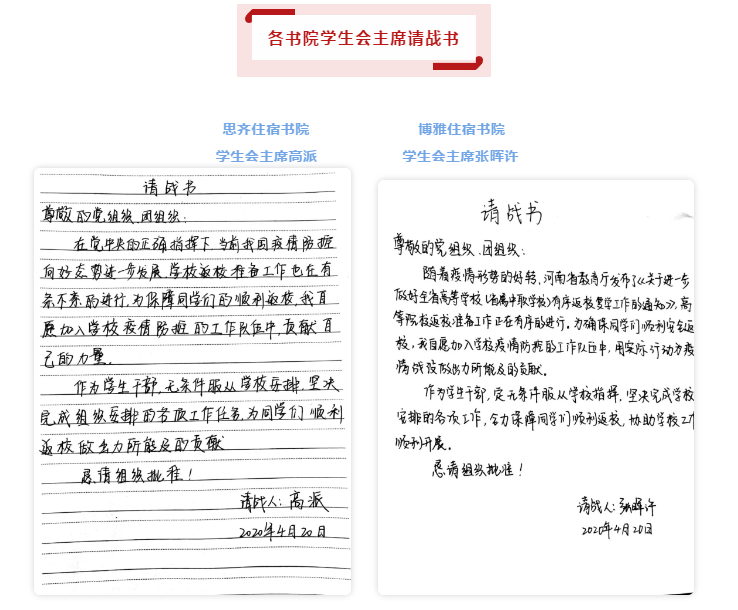 各书院学生会主席请战书
思齐住宿书院
学生会主席高派
请战书
尊敬的党组织、团组织：
在党中央的正确指挥下,当前我国疫情防控
向好态势进一步发展,学校返校准备工作也在有
条不紊的进行,为保障同学们的顺利返校,我自
愿加入学校疫情防控的工作队伍中,贡献自
己的力量.
作为学生干部,无条件服从学校安排,坚决
完成组织安排的各项工作任务,为同学们顺利
返校做出力所能及的贡献
恳请组织批准！
请战人：高派
2020年4月20日
博雅住宿书院
学生会主席张晖许
请战书
尊敬的党组织、团组织：
随着疫情形势的好转,河南省教育厅发布了《关于进一步
做好全省高等学校(省属中职学校)有序返校复学工作的通知》,高
等院校返校准备工作正在有序的进行.为确保同学们顺利安全返
校,我自愿加入学校疫情防控的工作队伍中,用实际行动为疫
情战役做出力所能及的贡献.
作为学生干部,定无条件服从学校指挥,坚决完成学校
安排的各项工作,全力保障同学们顺利返校,协助学校工作
顺利开展.
恳请组织批准！
请战人：张晖许
2020年4月20日